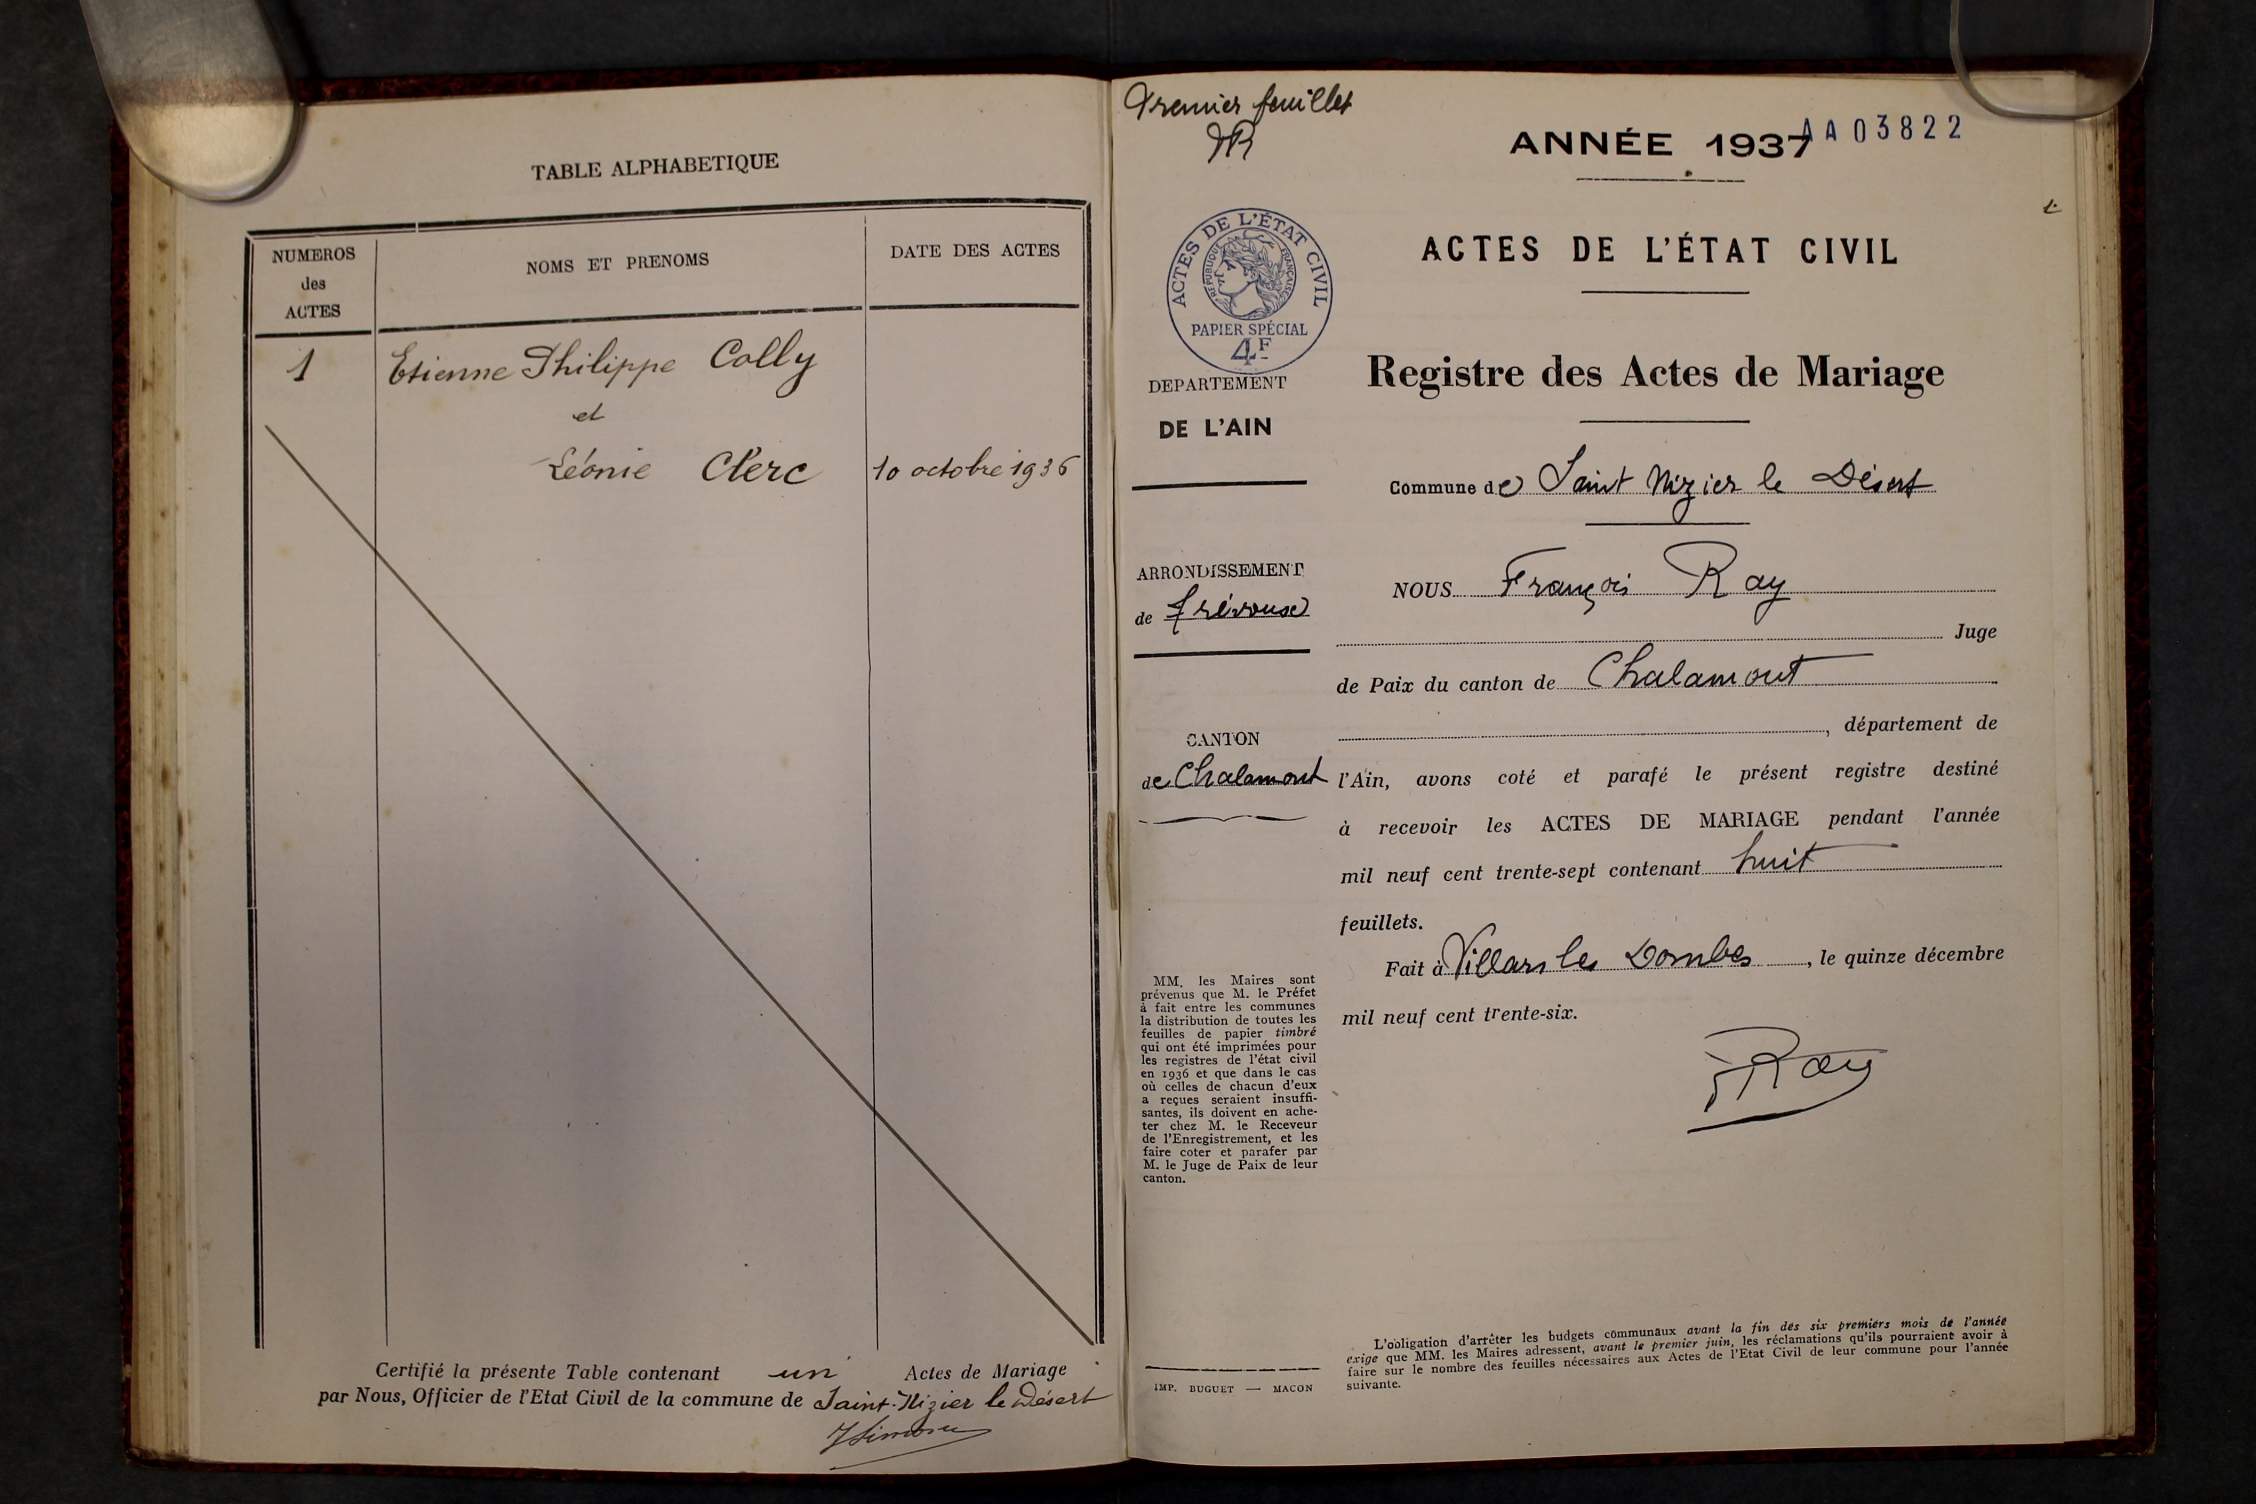 TABLE ALPHABETIQUE
NUMEROS
des
ACTES
NOMS ET PRENOMS
DATE DES ACTES
1
Etienne Philippe Colly
et
Léonie Clerc
10 octobre 1936
Certifié la présente Table contenant un Actes de Mariage
par Nous, Officier de l'Etat Civil de la commune de Saint-Nizier le Désert
Premier feuillet
ANNÉE 1937
AA03822
1
ACTES DE L'ÉTAT CIVIL
RÉPUBLIQUE FRANÇAISE
PAPIER SPÉCIAL
4F
DEPARTEMENT
DE L'AIN
ARRONDISSEMENT
de Trévoux
CANTON
de Chalamont
MM. les Maires sont
prévenus que M. le Préfet
à fait entre les communes
la distribution de toutes les
feuilles de papier timbré
qui ont été imprimées pour
les registres de l'état civil
en 1936 et que dans le cas
où celles de chacun d'eux
a reçues seraient insuffi-
santes, ils doivent en ache-
ter chez M. le Receveur
de l'Enregistrement, et les
faire coter et parafer par
M. le Juge de Paix de leur
canton.
IMP. BUGUET — MACON
ACTES DE L'ÉTAT CIVIL
Registre des Actes de Mariage
Commune de Saint Nizier le Désert
NOUS François Ray
Juge
de Paix du canton de Chalamont
, département de
l'Ain, avons coté et parafé le présent registre destiné
à recevoir les ACTES DE MARIAGE pendant l'année
mil neuf cent trente-sept contenant huit
feuillets.
Fait à Villars les Dombes, le quinze décembre
mil neuf cent trente-six.
FRay
L'obligation d'arrêter les budgets communaux avant la fin des six premiers mois de l'année
exige que MM. les Maires adressent, avant le premier juin, les réclamations qu'ils pourraient avoir à
faire sur le nombre des feuilles nécessaires aux Actes de l'Etat Civil de leur commune pour l'année
suivante.